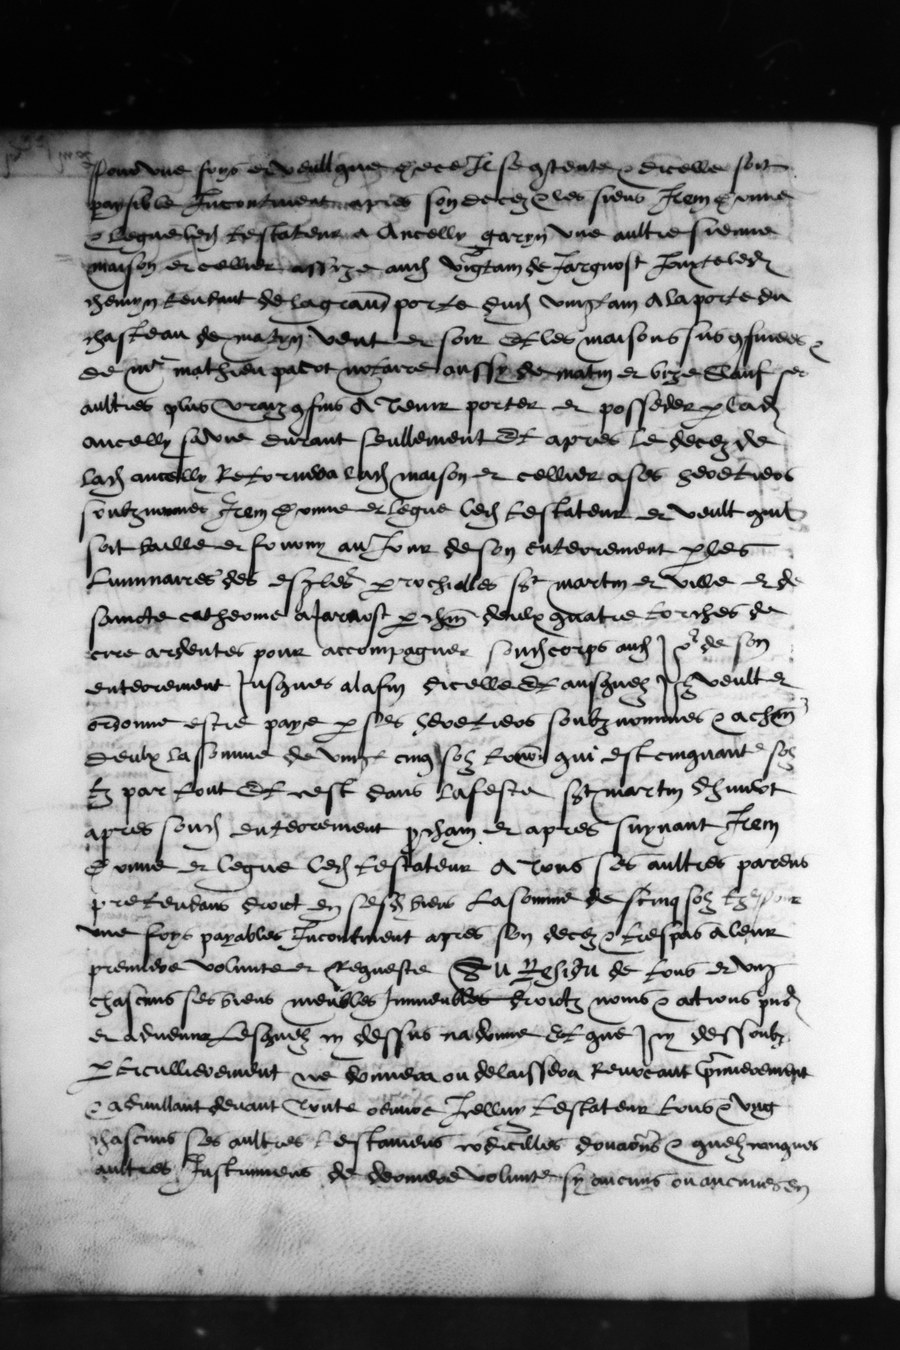 Pour une foys et veult que de ce Il se contente & dicelle soit
paysible Incontinent apres son decez & les siens Item donne
& legue led testateur a Ancelly garyn une aultre sienne
maison et cellier assize aud vingtain de Jarguost Jouxte led
chemyn tendant de la grand porte dud vingtain a la porte du
chasteau de matyn vent et soir Et les maisons sus confinees &
de me mathieu pacot notaire aussy de matin et bize Sauf ses
aultres plus vraiz confins A Tenir porter et posseder p lad
ancelly sa vie durant seullement Et apres le decez de
lad ancelly Retornera lad maison et cellier a ses heretiers
soubznommes Item donne et legue led testateur et veult quil
soit baille et fourny au Jour de son enterrement p les
luminaires des esglises parrochialles sct martin et ville et de
saincte catherine a Jarnost p chun deulx quatre torches de
cire ardentes pour accompagner sond corps aud Jor de son
enterrement Jusques a la fin dicelle Et ausquelz Il veult et
ordonne estre paye p ses heretiers soubz nommes & a chun
deulx la somme de vingt cinq solz tourn qui est cinquante solz
tz par tout Et cest dans la feste sct martin dhiver
apres sond enterrement p cham et apres suyvant Item
donne et legue led testateur A Tous ses aultres parens
pretendans droict en sesd biens La somme de cinq solz tz pour
une foys payables Incontinent apres son decez & trespas a leur
premiere volunte et Requeste Au Residu de tous et ung
chascuns ses biens meubles Immeubles droictz noms & actions pns
et advenir Lesquelz cy dessus na donne Et que Icy dessoubz
particullierement ne donnera ou delaissera Revocant premierement
& adnullant devant Toute oeuvre Icelluy testateur tous & ung
chascuns ses aultres testamens codicilles donations & quelzconques
aultres Instrumens de derniere volunte sy aucuns ou aucunes en